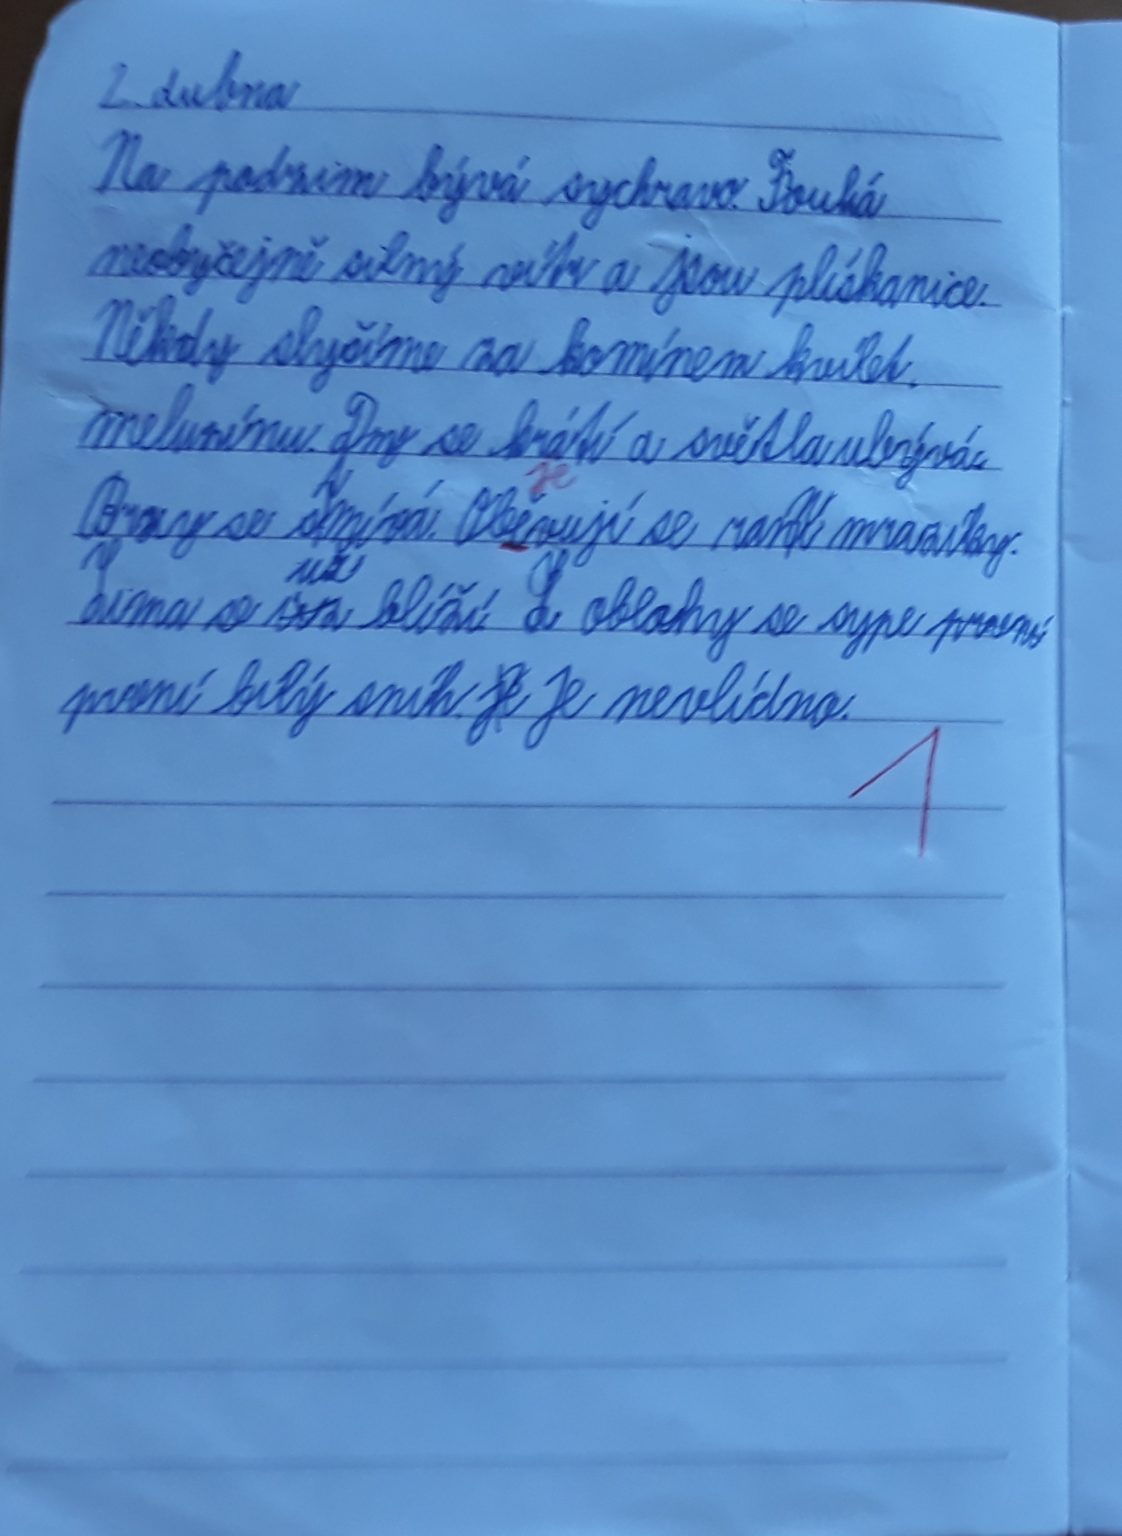 2. dubna
Na podzim bývá sychravo. Fouká
neobyčejně silmý vítr a jsou plískanice.
Někdy slyšíme za komínem kvílet
meluzínu. Dny se krátí a světla ubývá.
Brzy se stmívá. Oběvují se ranní mrazíky.
je
Zima se už blíží Z oblohy se sype
první bílý sníh. Je nevlídno.
1